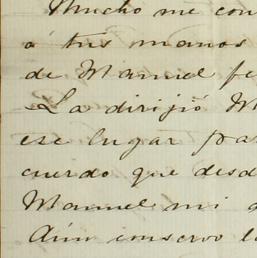 Mucho me con
á tus manos
de Manuel fe
La dirijió M
ese lugar
cuerdo que desd
Manuel mi a
Aún conservo l